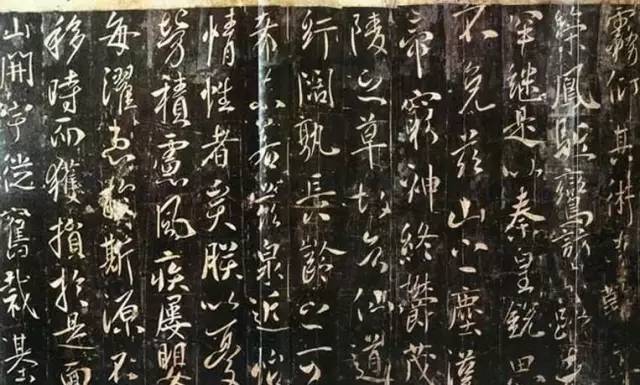 霧仰其術
鳳驅鸞
罕継是以秦皇銳思
不免茲山之塵漢
帝窮神終鬱茂
陵之草故知仙道
紆闊孰長齡之可
若茲泉近怡
情性者矣朕以憂
勞積慮風疾屢嬰
每濯患於斯源不
移時而獲損於是面
山開宇從舊裁基